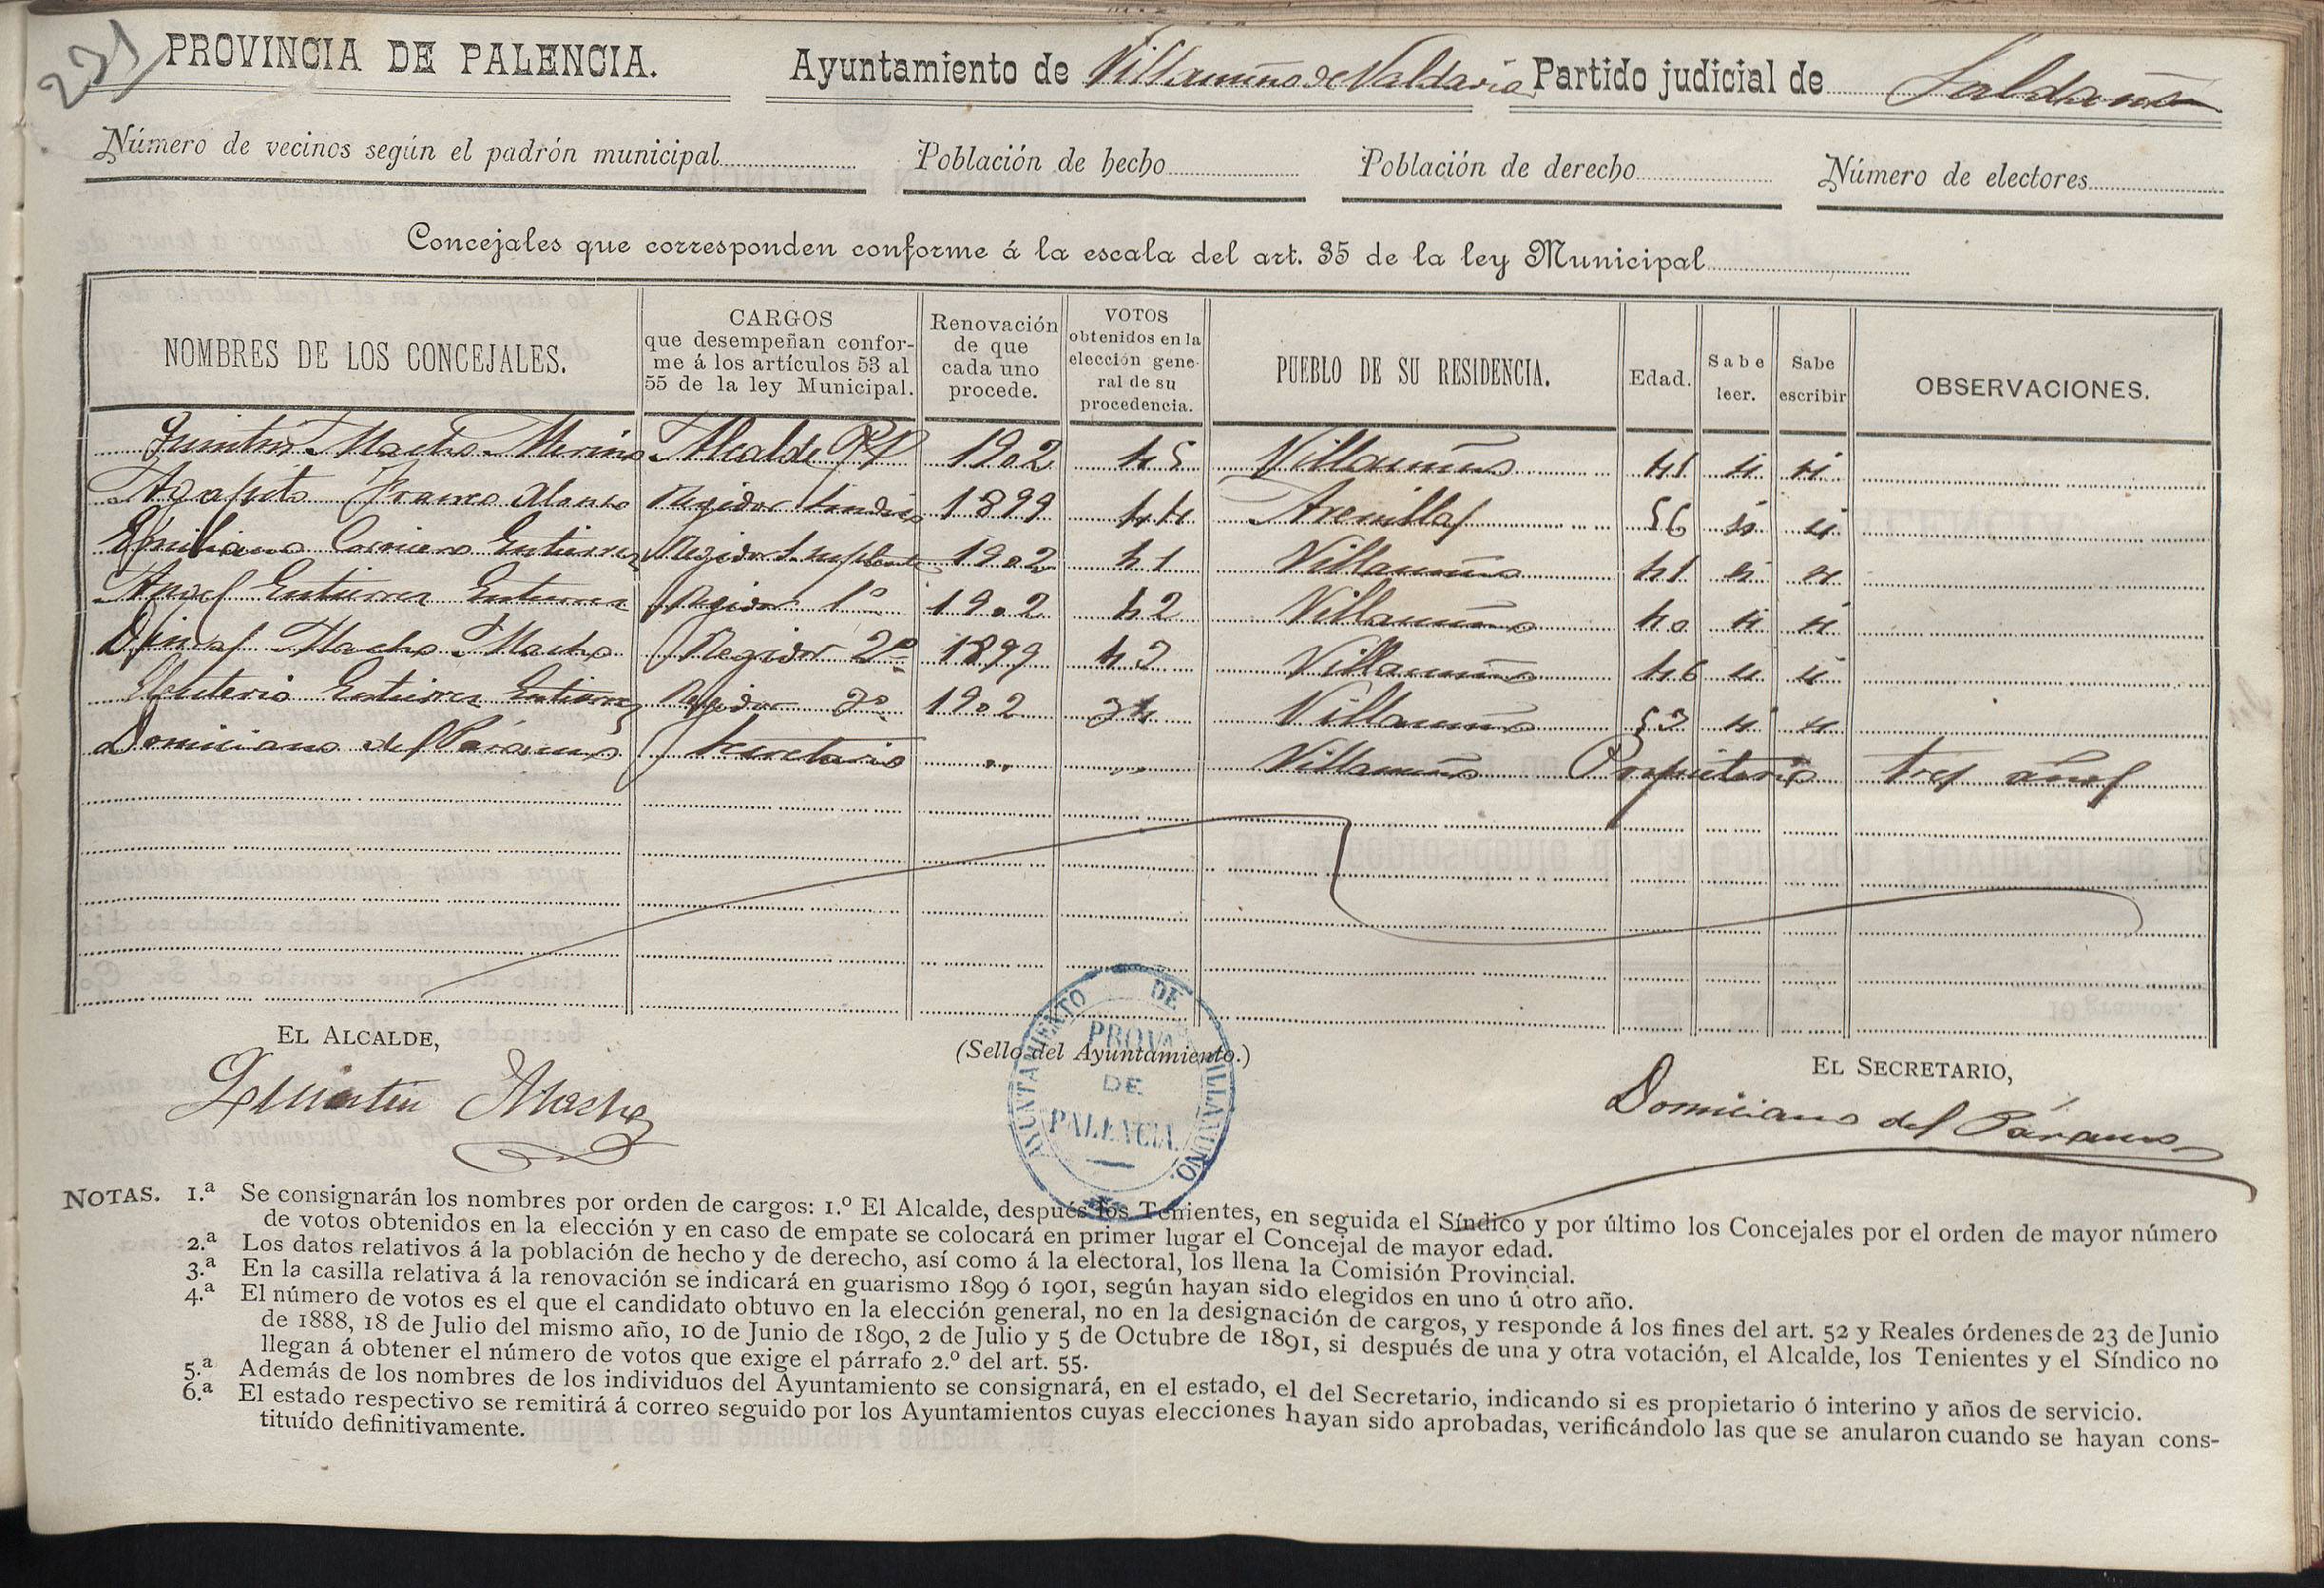 221
PROVINCIA DE PALENCIA. Ayuntamiento de Villanuño de Valdavia Partido judicial de Saldaña
Número de vecinos según el padrón municipal Población de hecho Población de derecho Número de electores
Concejales que corresponden conforme á la escala del art. 35 de la ley Municipal
NOMBRES DE LOS CONCEJALES. CARGOS que desempeñan conforme á los artículos 53 al 55 de la ley Municipal. Renovación de que cada uno procede. VOTOS obtenidos en la elección general de su procedencia. PUEBLO DE SU RESIDENCIA. Edad. Sabe leer. Sabe escribir OBSERVACIONES.
Quintin Macho Merino Alcalde 1902 45 Villanuño 41 si si
Agapito Franco Alonso Regidor Sindico 1899 44 Arenillas 56 si si
Emiliano Gutierrez Regidor S. suplente 1902 41 Villanuño 41 si si
Angel Gutierrez Gutierrez Regidor 1º 1902 42 Villanuño 40 si si
Macho Macho Regidor 2º 1899 43 Villanuño 46 si si
Eleuterio Gutierrez Gutierrez Regidor 3º 1902 34 Villanuño 53 si si
Domiciano del Páramo Secretario " " Villanuño Propietario tres años
EL ALCALDE, (Sello del Ayuntamiento.) EL SECRETARIO,
Quintin Macho
AYUNTAMIENTO DE VILLANUÑO.
PROVA.
DE
PALENCIA.
Domiciano del Páramo
NOTAS. 1.ª Se consignarán los nombres por orden de cargos: 1.º El Alcalde, después los Tenientes, en seguida el Síndico y por último los Concejales por el orden de mayor número
de votos obtenidos en la elección y en caso de empate se colocará en primer lugar el Concejal de mayor edad.
2.ª Los datos relativos á la población de hecho y de derecho, así como á la electoral, los llena la Comisión Provincial.
3.ª En la casilla relativa á la renovación se indicará en guarismo 1899 ó 1901, según hayan sido elegidos en uno ú otro año.
4.ª El número de votos es el que el candidato obtuvo en la elección general, no en la designación de cargos, y responde á los fines del art. 52 y Reales órdenes de 23 de Junio
de 1888, 18 de Julio del mismo año, 10 de Junio de 1890, 2 de Julio y 5 de Octubre de 1891, si después de una y otra votación, el Alcalde, los Tenientes y el Síndico no
llegan á obtener el número de votos que exige el párrafo 2.º del art. 55.
5.ª Además de los nombres de los individuos del Ayuntamiento se consignará, en el estado, el del Secretario, indicando si es propietario ó interino y años de servicio.
6.ª El estado respectivo se remitirá á correo seguido por los Ayuntamientos cuyas elecciones hayan sido aprobadas, verificándolo las que se anularon cuando se hayan cons-
tituído definitivamente.